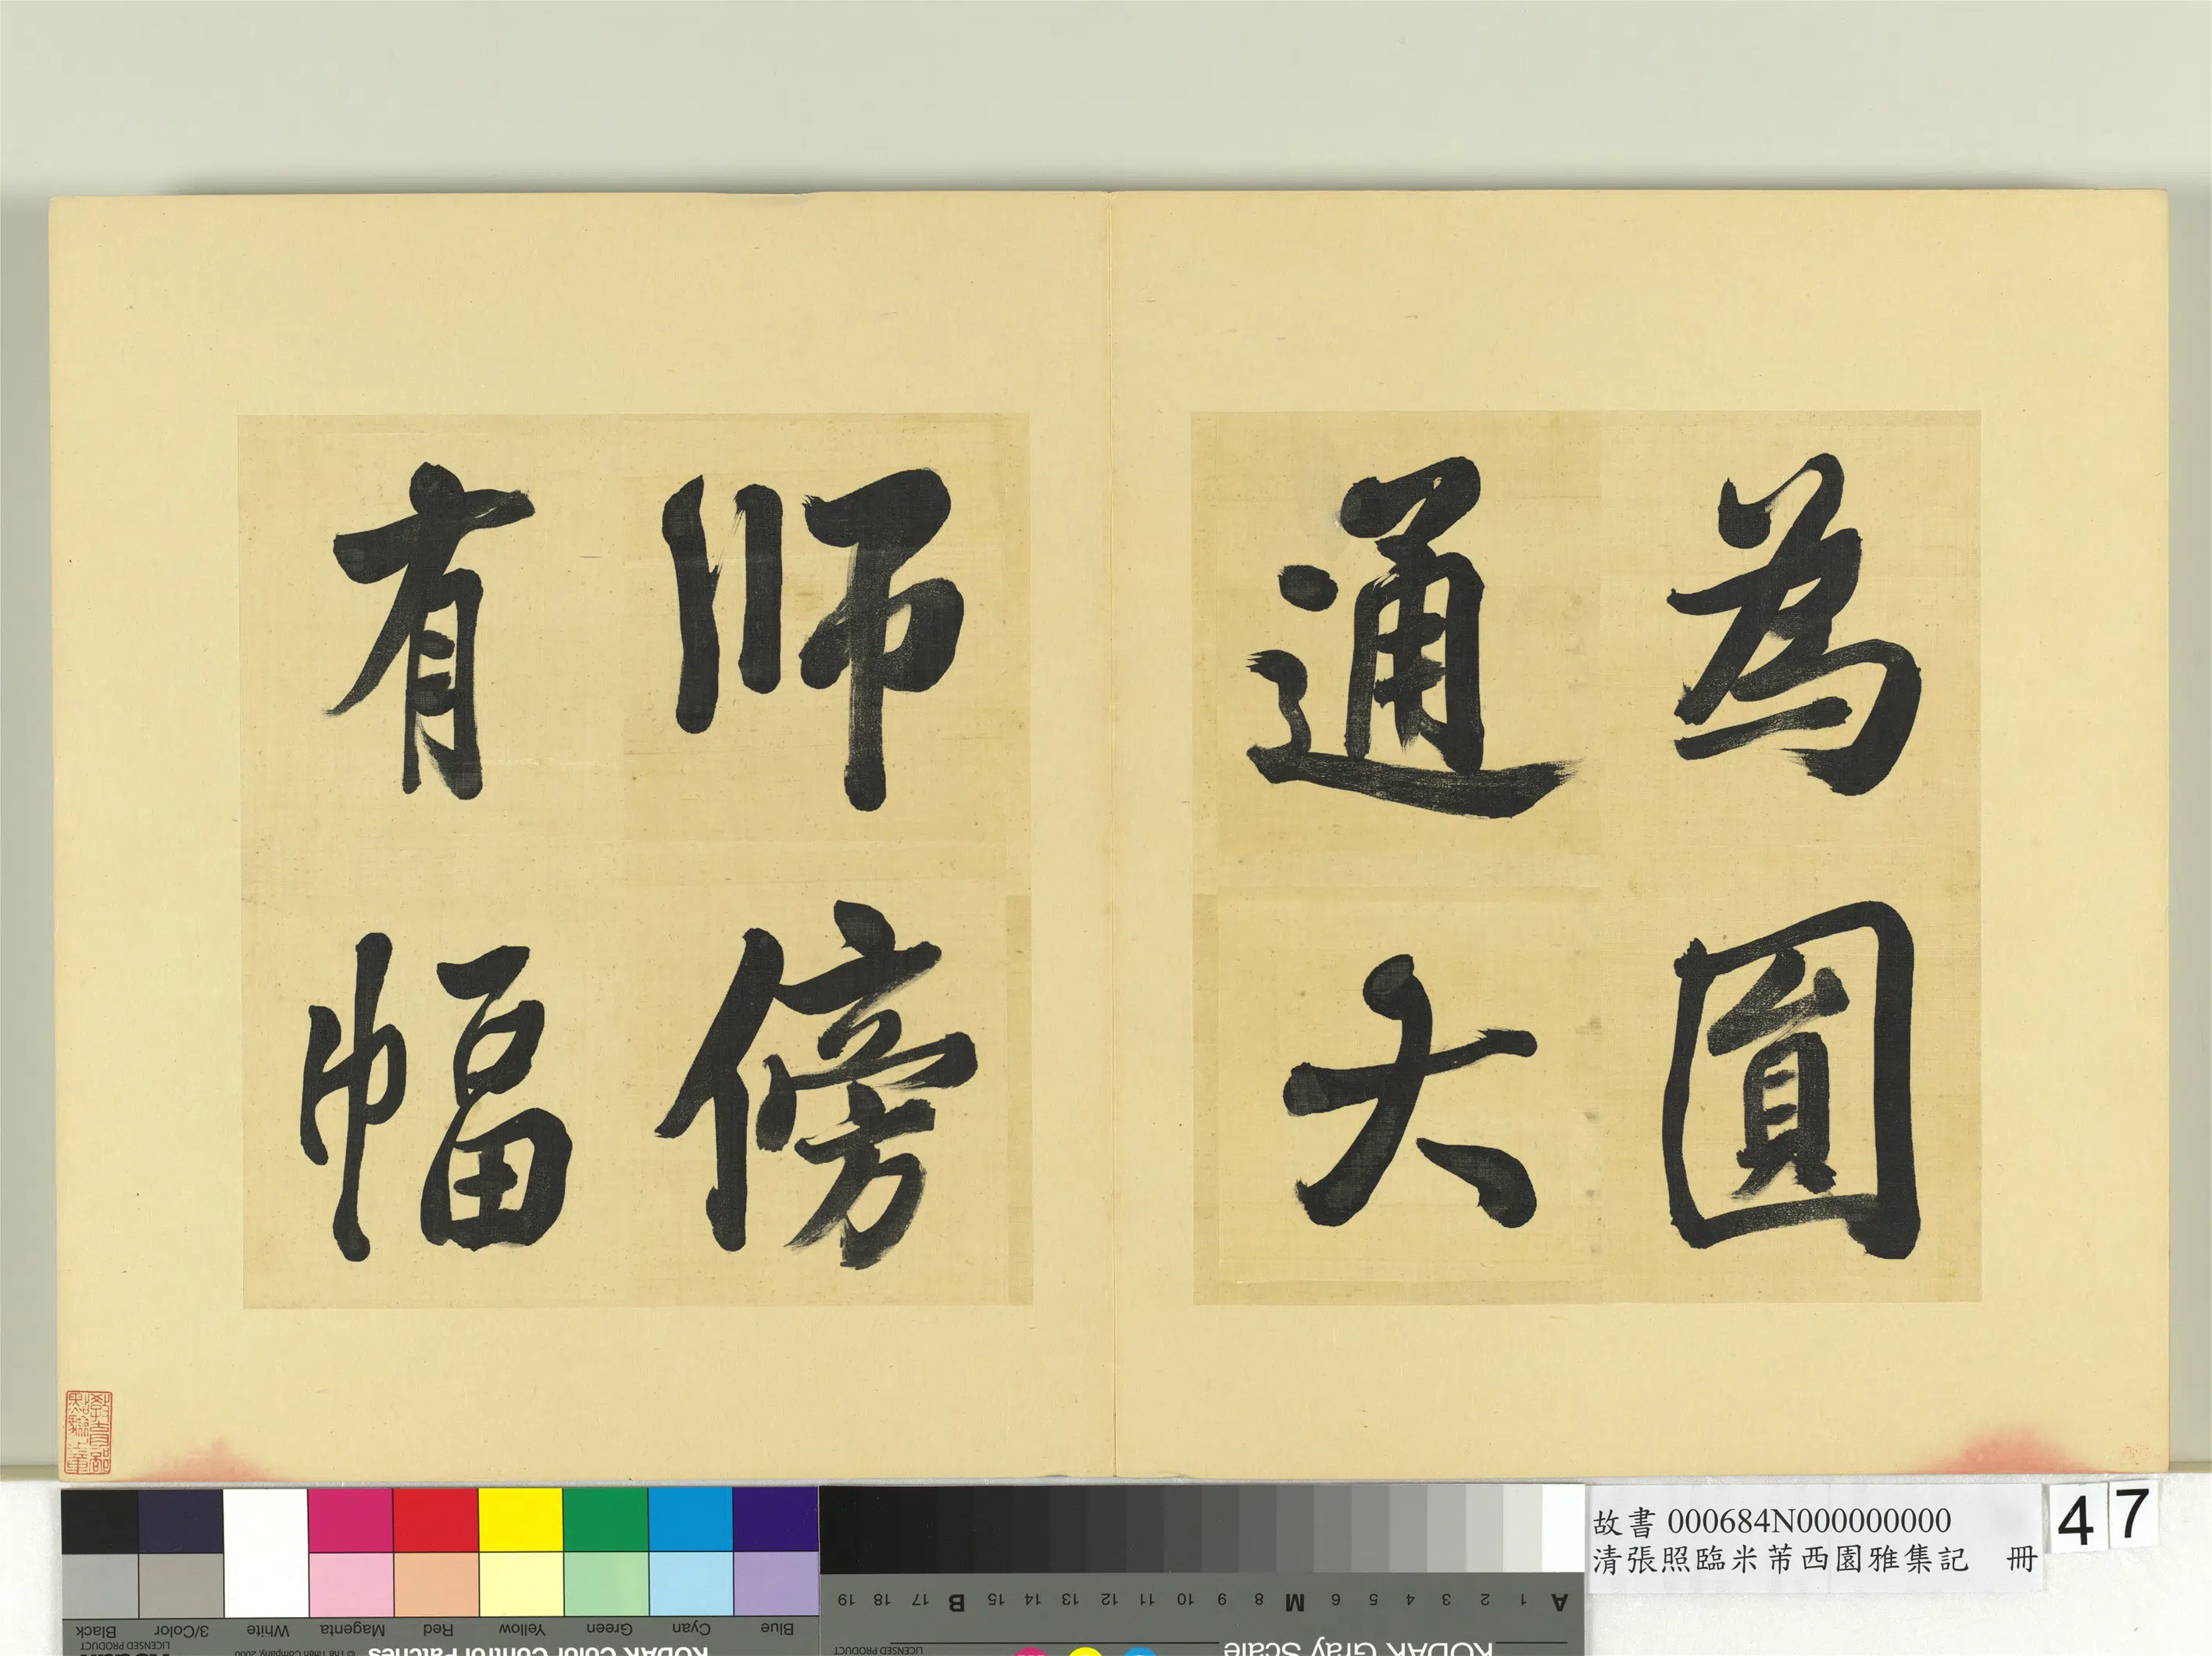 為圓
通大
師傍
有幅
教育部
點驗之章
故書 000684N000000000
清張照臨米芾西園雅集記 冊
47
Black
3/Color
White
Magenta
Red
Yellow
Green
Cyan
Blue
LICENSED PRODUCT
© The Tiffen Company, 2000
KODAK Color Control Patches
A 1 2 3 4 5 6 M 8 9 10 11 12 13 14 15 B 17 18 19
KODAK Gray Scale
LICENSED PRODUCT